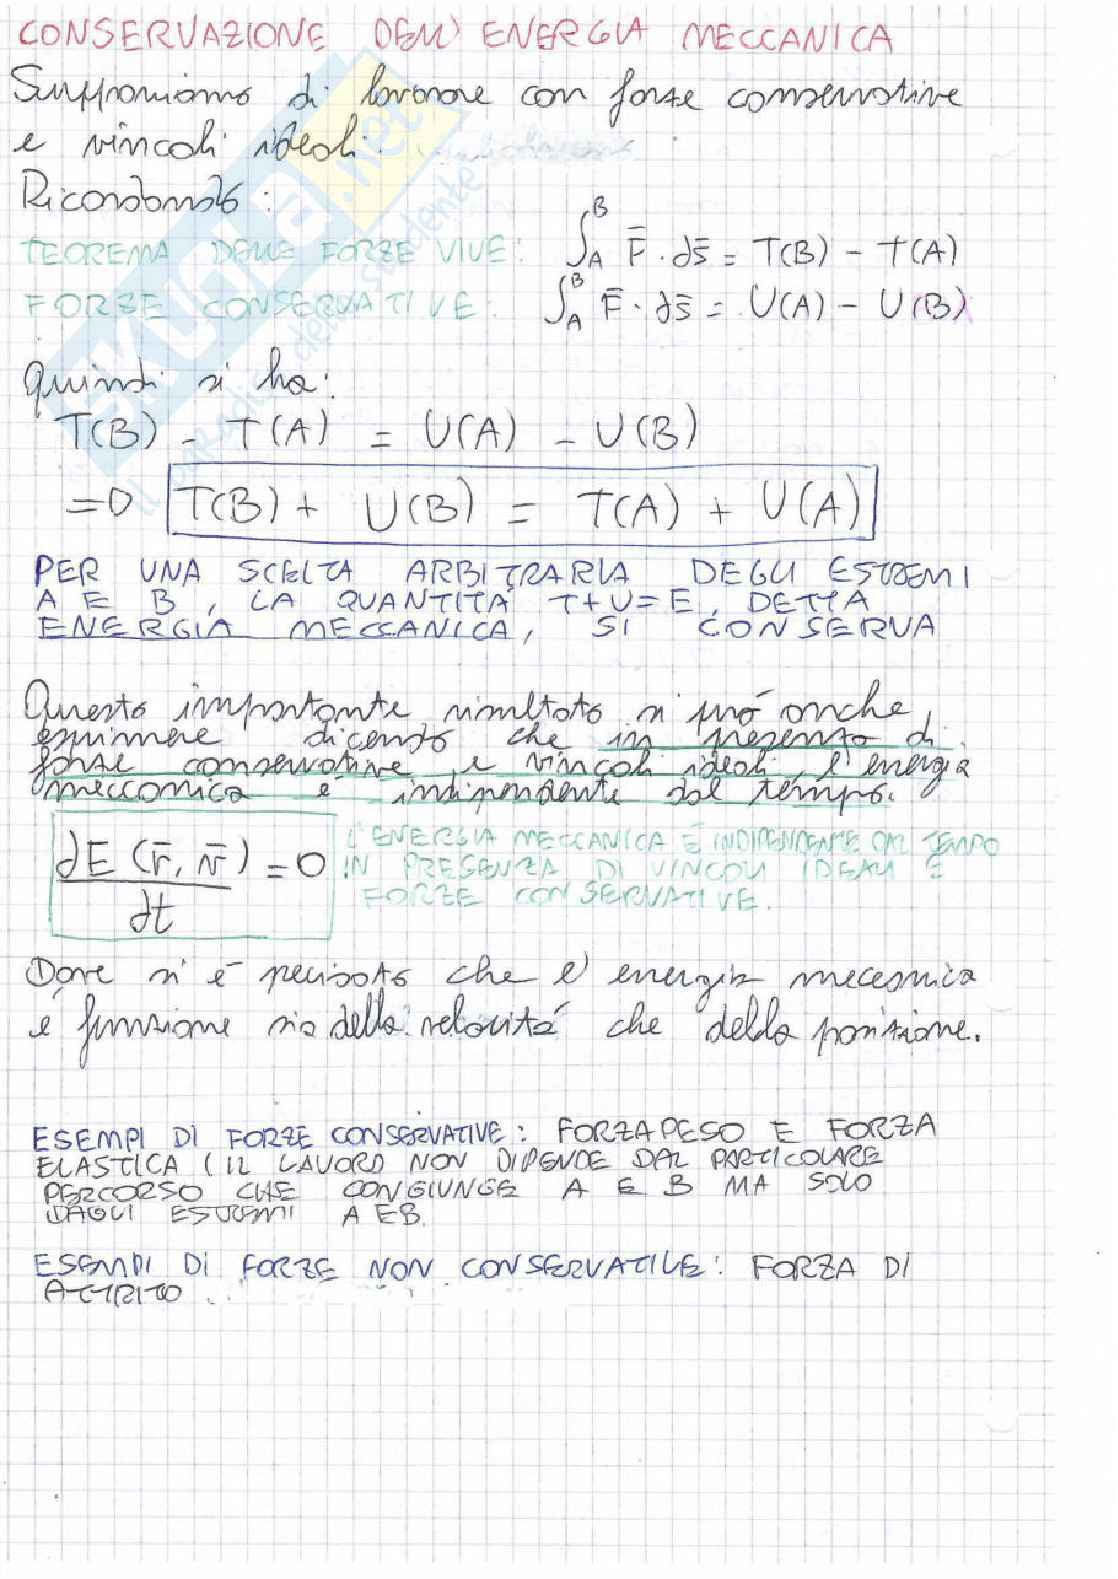 CONSERVAZIONE DELL'ENERGIA MECCANICA
Supponiamo di lavorare con forze conservative
e vincoli ideali.
Ricordando:
TEOREMA DELLE FORZE VIVE: ∫_A^B F̄ · ds̄ = T(B) - T(A)
FORZE CONSERVATIVE: ∫_A^B F̄ · ds̄ = U(A) - U(B)
Quindi si ha:
T(B) - T(A) = U(A) - U(B)
=0 T(B) + U(B) = T(A) + U(A)
PER UNA SCELTA ARBITRARIA DEGLI ESTREMI
A E B, LA QUANTITÀ T+U=E, DETTA
ENERGIA MECCANICA, SI CONSERVA
Questo importante risultato si può anche
esprimere dicendo che in presenza di
forze conservative e vincoli ideali, l'energia
meccanica è indipendente dal tempo.
dE(r̄, v̄)/dt = 0
L'ENERGIA MECCANICA È INDIPENDENTE DAL TEMPO
IN PRESENZA DI VINCOLI IDEALI E
FORZE CONSERVATIVE.
Dove si è precisato che l'energia meccanica
è funzione sia della velocità che della posizione.
ESEMPI DI FORZE CONSERVATIVE: FORZA PESO E FORZA
ELASTICA (IL LAVORO NON DIPENDE DAL PARTICOLARE
PERCORSO CHE CONGIUNGE A E B MA SOLO
DAGLI ESTREMI A E B.
ESEMPI DI FORZE NON CONSERVATIVE: FORZA DI
ATTRITO
SKUOLA.net
il paradiso dello studente